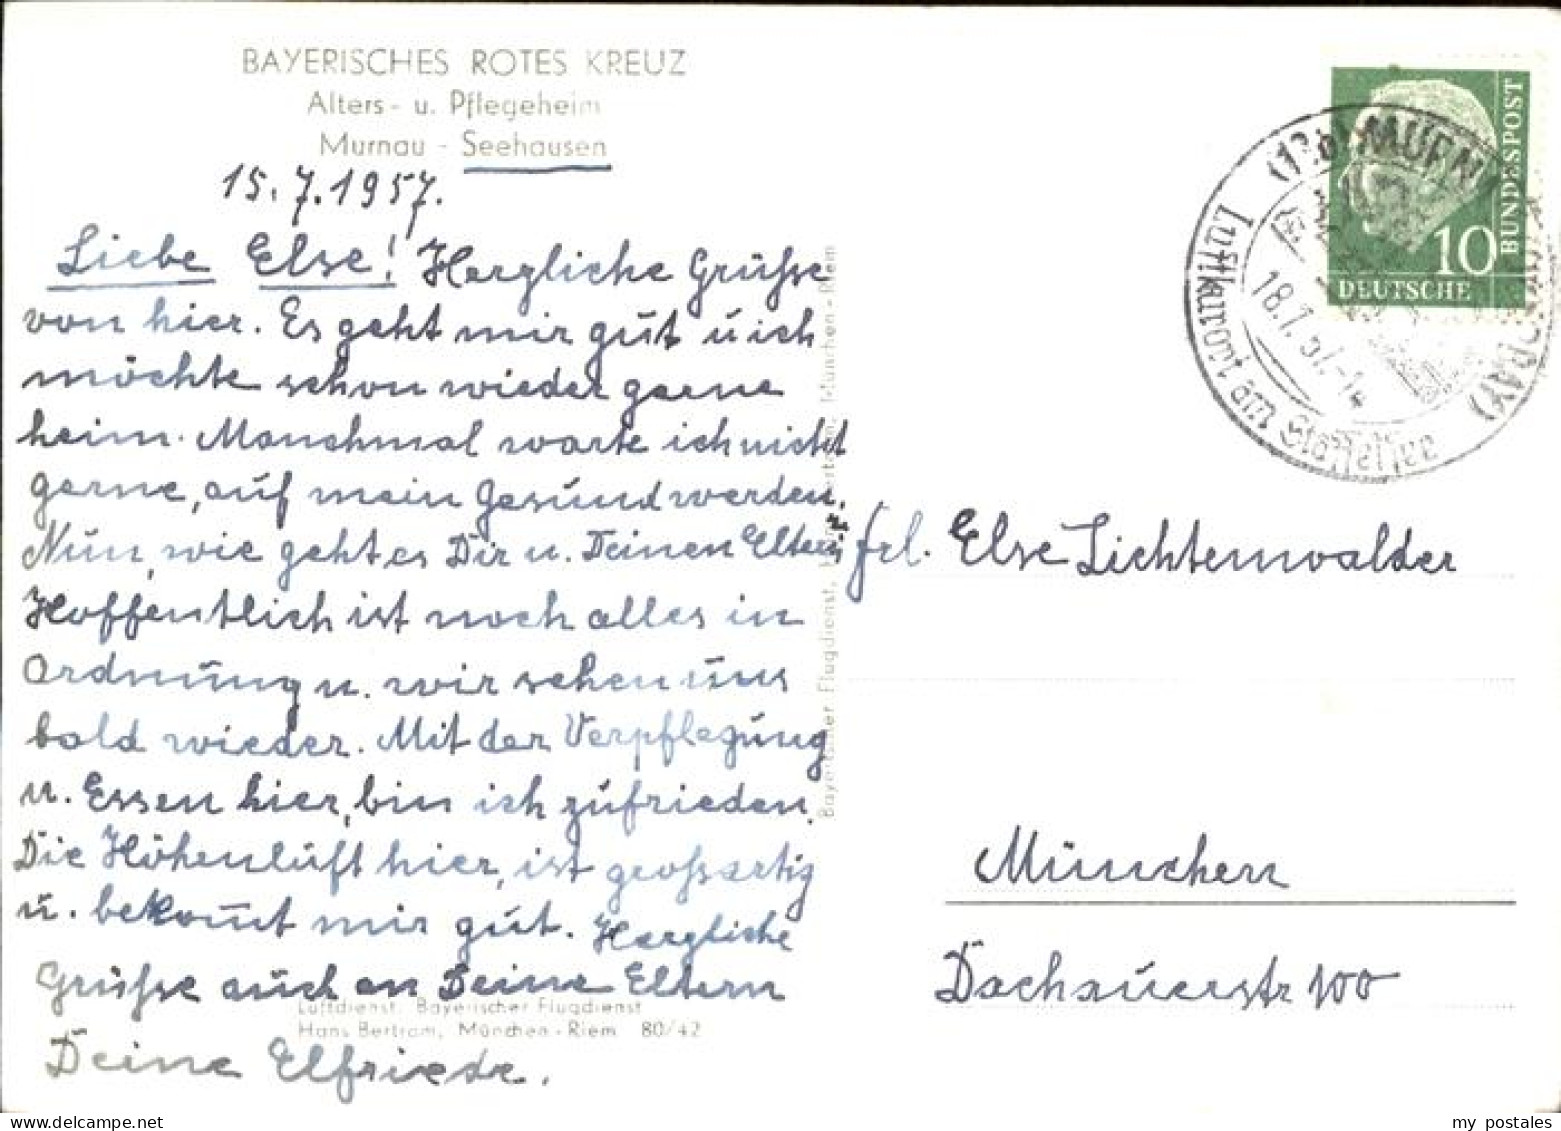 BAYERISCHES ROTES KREUZ
Alters- u. Pflegeheim
Murnau - Seehausen
15.7.1957.
Liebe Else! Herzliche Grüsse
von hier. Es geht mir gut u ich
möchte schon wieder gerne
heim. Manchmal warte ich nicht
gerne, auf mein Gesund werden.
Nun, wie geht es Dir u. Deinen Eltern
Hoffentlich ist noch alles in
Ordnung u. wir sehen uns
bald wieder. Mit der Verpflegung
u. Essen hier, bin ich zufrieden.
Die Höhenluft hier, ist großartig
u. bekommt mir gut. Herzliche
Grüsse auch an Deine Eltern
Deine Elfriede.
Luftdienst: Bayerischer Flugdienst
Hans Bertram, München - Riem 80/42
Bayerischer Flugdienst, München - Riem
BUNDESPOST
10
DEUTSCHE
MURN
Luftkurort am Staffelsee
18.7.57.-1
Frl. Else Lichtenwalder
München
Dachauerstr 100
my postales